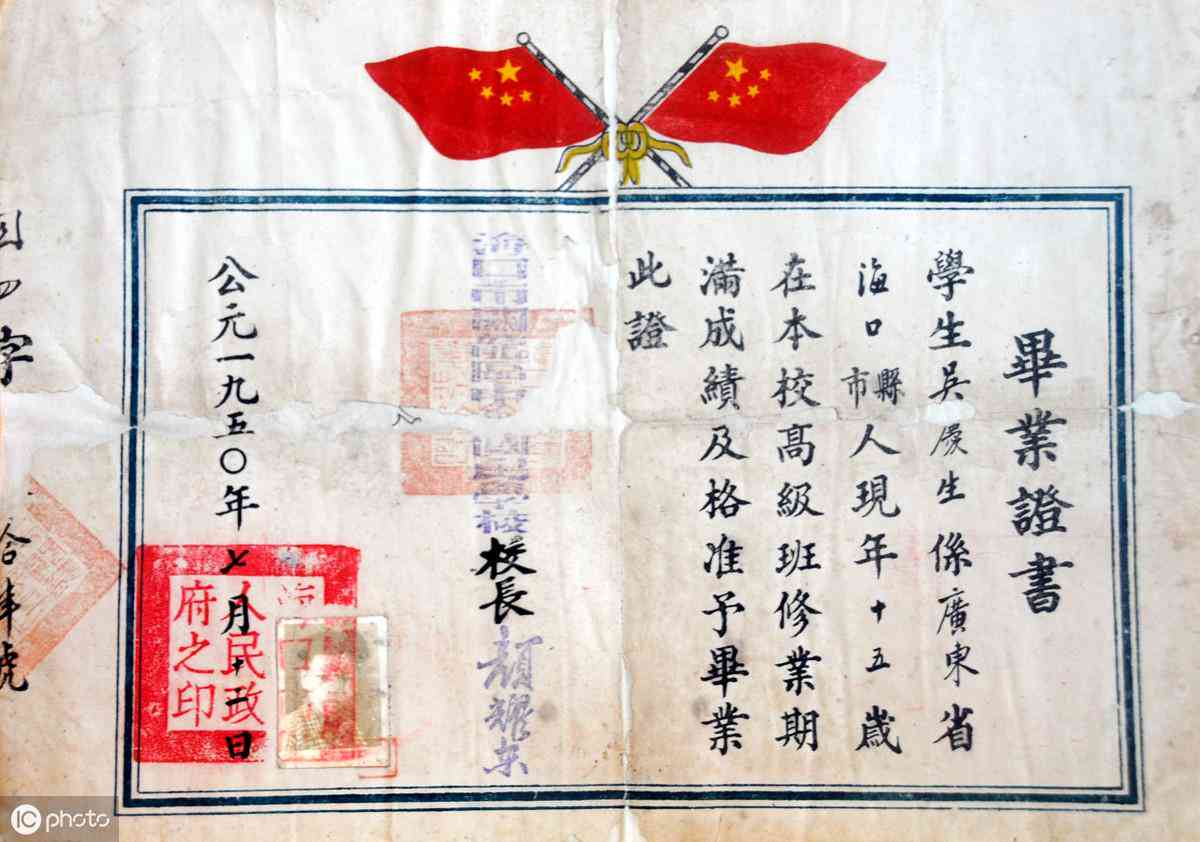 畢業證書
學生吳慶生係廣東省
海口市縣人現年十五歲
在本校高級班修業期
滿成績及格准予畢業
此證
海口市
學校
校長
顏耀東
公元一九五〇年七月十一日
海口
人民政
府之印
字
拾
號
IC photo